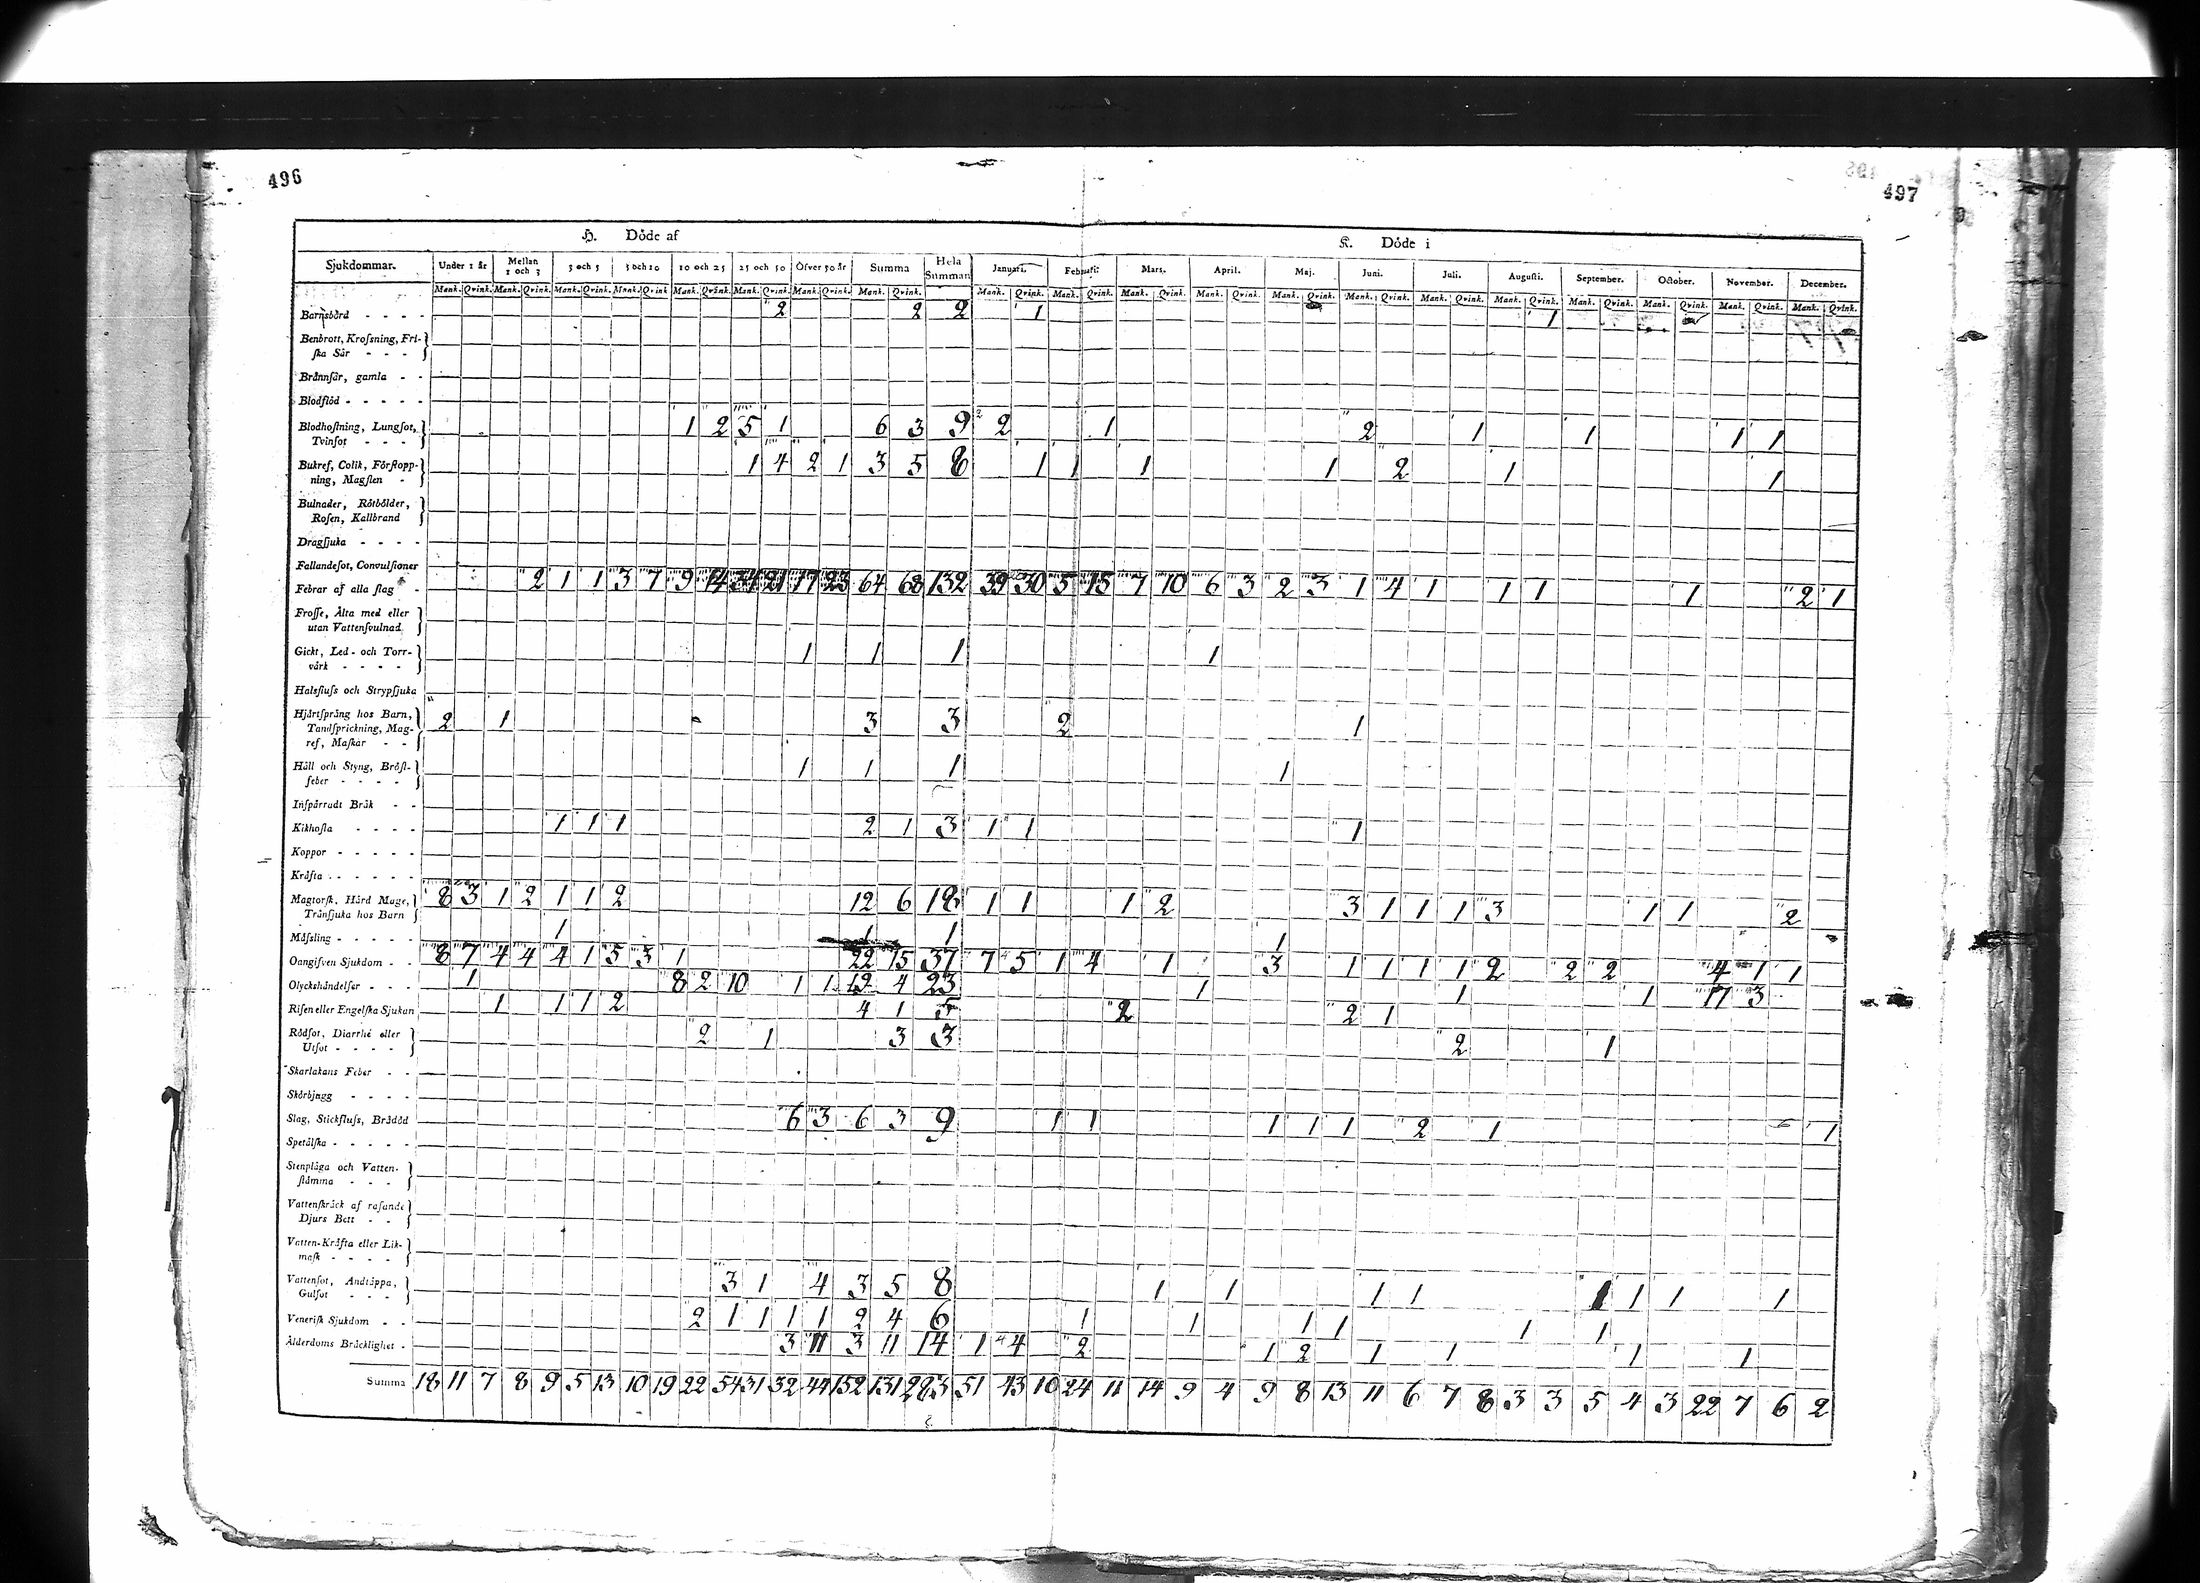 496
497
H. Döde af
K. Döde i
Sjukdommar. Under 1 år Mellan 1 och 3 3 och 5 5 och 10 10 och 25 25 och 50 Öfver 50 år Summa Hela Summan Januari. Februari. Mars. April. Maj. Juni. Juli. Augusti. September. October. November. December.
Mank. Qvink. Mank. Qvink. Mank. Qvink. Mank. Qvink Mank. Qvink. Mank. Qvink. Mank. Qvink. Mank. Qvink. Mank. Qvink. Mank. Qvink. Mank. Qvink. Mank. Qvink. Mank. Qvink. Mank. Qvink. Mank. Qvink. Mank. Qvink. Mank. Qvink. Mank. Qvink. Mank. Qvink. Mank. Qvink.
Barnsbörd - - - - 2 2 2 1 1
Benbrott, Krosning, Fri-
ska Sår - - -
Brännsår, gamla - -
Blodflöd - - - - -
Blodhostning, Lungsot,
Tvinsot - - - 1 2 5 1 6 3 9 2 1 2 1 1 1 1
Bukref, Colik, Förstopp-
ning, Magsten - 1 4 2 1 3 5 8 1 1 1 1 2 1 1
Bulnader, Rötbölder,
Rosen, Kallbrand
Dragsjuka - - - -
Fallandesot, Convulsioner
Febrar af alla slag - 2 1 1 3 7 9 14 34 21 17 23 64 68 132 39 30 5 15 7 10 6 3 2 3 1 4 1 1 1 1 2 1
Frosse, Älta med eller
utan Vattensvulnad
Gickt, Led- och Torr-
värk - - - - 1 1 1 1
Halsfluss och Strypsjuka
Hjärtsprång hos Barn,
Tandsprickning, Mag-
ref, Maskar - - 2 1 3 3 2 1
Håll och Styng, Bröst-
feber - - - - 1 1 1 1
Inspärradt Bråk - -
Kikhosta - - - - 1 1 1 2 1 3 1 1 1
Koppor - - - - -
Kräfta - - - - -
Magtorsk, Hård Mage,
Tränsjuka hos Barn 8 3 1 2 1 1 2 12 6 18 1 1 1 2 3 1 1 1 3 1 1 2
Mässling - - - - - 1 1 1 1
Oangifven Sjukdom - - 8 7 4 4 4 1 5 3 1 22 15 37 7 5 1 4 1 3 1 1 1 1 2 2 2 4 1 1
Olyckshändelser - - - 1 8 2 10 1 1 19 4 23 1 1 1 17 3
Risen eller Engelska Sjukan 1 1 1 2 4 1 5 2 2 1
Rödsot, Diarrhé eller
Utsot - - - - 2 1 3 3 2 1
Skarlakans Feber - -
Skörbjugg - - - -
Slag, Stickfluss, Brådöd 6 3 6 3 9 1 1 1 1 1 2 1 1
Spetälska - - - - -
Stenplåga och Vatten-
stämma - - -
Vattenskräck af rasande
Djurs Bett - -
Vatten-Kräfta eller Lik-
mask - - - -
Vattensot, Andtäppa,
Gulsot - - - 3 1 4 3 5 8 1 1 1 1 1 1 1 1
Venerisk Sjukdom - - 2 1 1 1 1 2 4 6 1 1 1 1 1 1
Ålderdoms Bräcklighet - 3 11 3 11 14 1 4 2 1 2 1 1 1 1
Summa 18 11 7 8 9 5 13 10 19 22 54 31 32 44 152 131 283 51 43 10 24 11 14 9 4 9 8 13 11 6 7 8 3 3 5 4 3 22 7 6 2